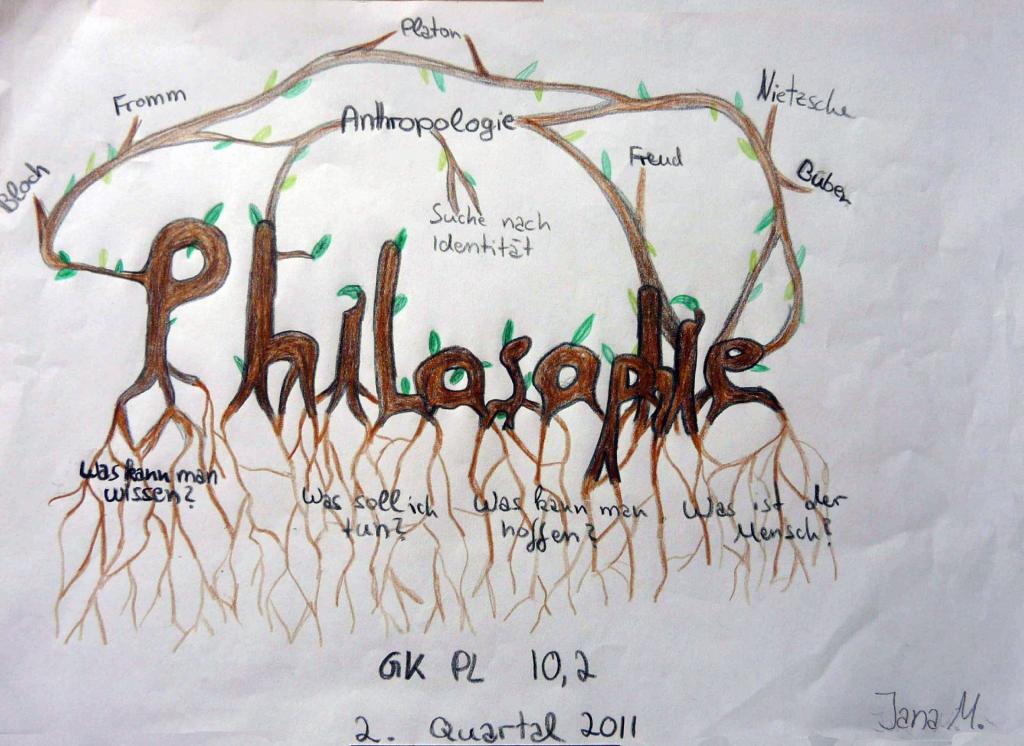 Platon
Fromm
Nietzsche
Anthropologie
Freud
Bloch
Buber
Suche nach
Identität
Philosophie
Was kann man
wissen?
Was soll ich
tun?
Was kann man
hoffen?
Was ist der
Mensch?
GK PL 10,2
2. Quartal 2011
Jana M.